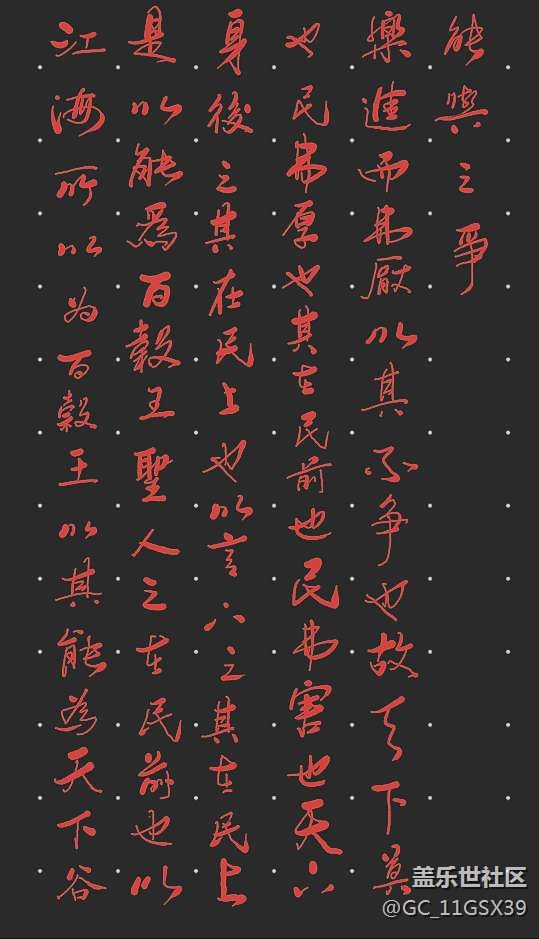 江海所以为百穀王以其能為天下谷
是以能爲百穀王聖人之在民前也以
身後之其在民上也以言下之其在民上
也民弗厚也其在民前也民弗害也天下
樂進而弗厭以其不争也故天下莫
能與之爭
盖乐世社区
@GC_11GSX39